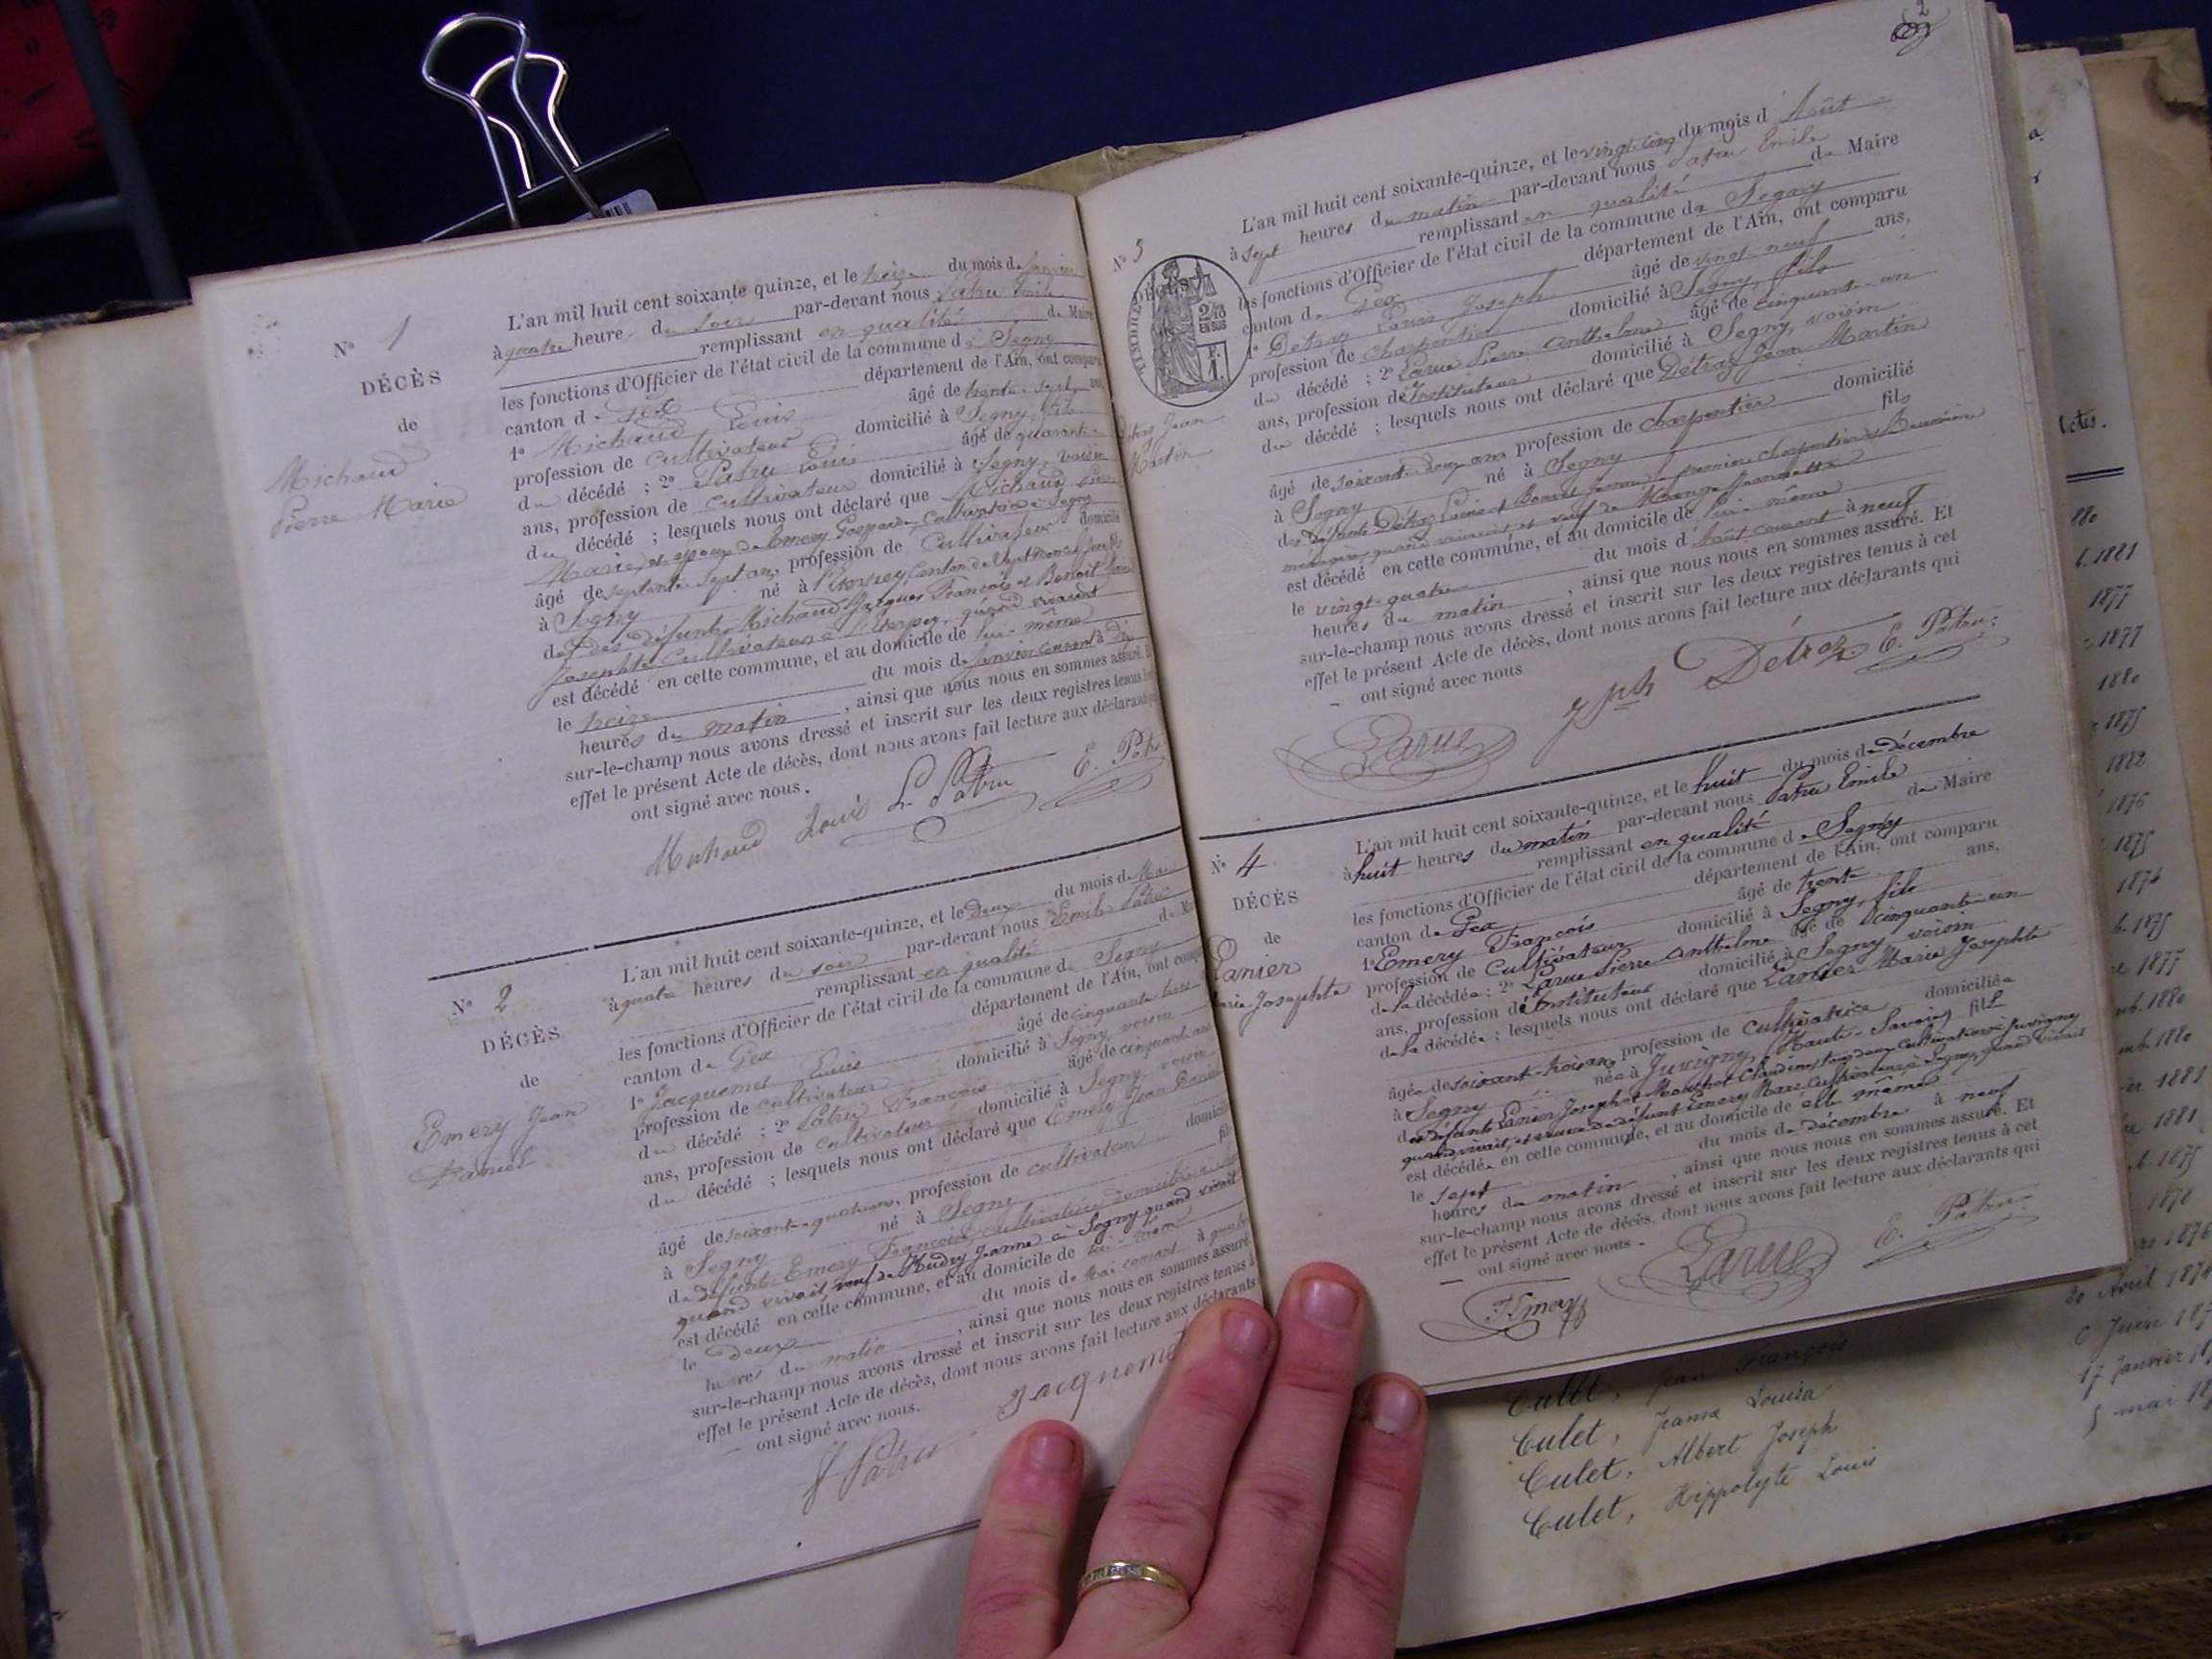 N° 1
DÉCÈS
de
Michaud
Pierre Marie
L'an mil huit cent soixante-quinze, et le treize du mois de Janvier
à quatre heures du soir par-devant nous Patru Emile
remplissant en qualité de Maire
les fonctions d'Officier de l'état civil de la commune de Segny
canton de Gex département de l'Ain, ont comparu
1° Michaud Louis âgé de trente-sept ans
profession de cultivateur domicilié à Segny, fils
du décédé ; 2° Patru Louis âgé de quarante
ans, profession de cultivateur domicilié à Segny, voisin
du décédé ; lesquels nous ont déclaré que Michaud Pierre
Marie, et époux de Emery Gasparde, Cultivatrice à Segny
âgé de septante-sept ans, profession de Cultivateur domicilié
à Segny né à l'Eterpey Canton de
des défunts Michaud Jacques François et Benoit
Josephte Cultivateurs à l'Eterpey, quand vivaient
est décédé en cette commune, et au domicile de lui-même
le treize du mois de Janvier courant à dix
heures du matin, ainsi que nous nous en sommes assuré. Et
sur-le-champ nous avons dressé et inscrit sur les deux registres tenus
effet le présent Acte de décès, dont nous avons fait lecture aux déclarants
ont signé avec nous.
Michaud Louis L. Patru E. Patru
N° 2
DÉCÈS
de
Emery Jean
Daniel
L'an mil huit cent soixante-quinze, et le Deux du mois de Mai
à quatre heures du soir par-devant nous Emile Patru
remplissant en qualité de
les fonctions d'Officier de l'état civil de la commune de Segny
canton de Gex département de l'Ain, ont
1° Jacquemet Louis âgé de cinquante-trois
profession de cultivateur domicilié à Segny, voisin
du décédé ; 2° Patru François âgé de cinquante
ans, profession de cultivateur domicilié à Segny, voisin
du décédé ; lesquels nous ont déclaré que Emery Jean Daniel
âgé de soixante-quatre ans, profession de cultivateur
à Segny né à Segny fils
de défunt Emery François, cultivateur
quand vivait, veuf de Hudry Jeanne à Segny quand vivait
est décédé en cette commune, et au domicile de lui-même
le Deux du mois de Mai courant à quatre
heures du matin, ainsi que nous nous en sommes assuré.
sur-le-champ nous avons dressé et inscrit sur les deux registres tenus à
effet le présent Acte de décès, dont nous avons fait lecture aux déclarants
ont signé avec nous.
Jacquemet
F Patru
2
N° 3
DÉCÈS
TIMBRE
2/10
EN SUS
F.
1.
Jean
Martin
L'an mil huit cent soixante-quinze, et le vingt-cinq du mois d'Août
à sept heures du matin par-devant nous Patru Emile
remplissant en qualité de Maire
les fonctions d'Officier de l'état civil de la commune de Segny
canton de Gex département de l'Ain, ont comparu
1° Détraz Louis Joseph âgé de vingt-neuf ans,
profession de charpentier domicilié à Segny, fils
du décédé ; 2° Larue Pierre Anthelme âgé de cinquante-un
ans, profession d'Instituteur domicilié à Segny, voisin
du décédé ; lesquels nous ont déclaré que Détraz Jean Martin
âgé de soixante-douze ans profession de charpentier domicilié
à Segny né à Segny fils
des défunts Détraz Louis et
ménagère quand vivaient et veuf de Jeannette
est décédé en cette commune, et au domicile de lui-même
le vingt-quatre du mois d'Août courant à neuf
heures du matin, ainsi que nous nous en sommes assuré. Et
sur-le-champ nous avons dressé et inscrit sur les deux registres tenus à cet
effet le présent Acte de décès, dont nous avons fait lecture aux déclarants qui
ont signé avec nous
Larue Jph Détraz E. Patru
N° 4
DÉCÈS
de
Lanier
Marie Josephte
L'an mil huit cent soixante-quinze, et le huit du mois de décembre
à huit heures du matin par-devant nous Patru Emile
remplissant en qualité de Maire
les fonctions d'Officier de l'état civil de la commune de Segny
canton de Gex département de l'Ain, ont comparu
1° Emery François âgé de trente ans,
profession de Cultivateur domicilié à Segny, fils
de la décédée ; 2° Larue Pierre Anthelme âgé de cinquante-un
ans, profession d'Instituteur domicilié à Segny voisin
de la décédée ; lesquels nous ont déclaré que Lanier Marie Josephte
âgée de soixante-trois ans, profession de cultivatrice domiciliée
à Segny née à Juvigny (Haute-Savoie) fille
des défunts Lanier Joseph et Claudine, tous deux Cultivateurs à Juvigny
quand vivait, et veuve de défunt Emery Marc Cultivateur à Segny, quand vivait
est décédée en cette commune, et au domicile de elle même
le sept du mois de décembre à neuf
heures du matin, ainsi que nous nous en sommes assuré. Et
sur-le-champ nous avons dressé et inscrit sur les deux registres tenus à cet
effet le présent Acte de décès, dont nous avons fait lecture aux déclarants qui
ont signé avec nous
F. Emery Larue E. Patru
Actes.
1881
1877
1877
1880
1875
1882
1876
1875
1875
1877
1880
1880
1881
1881
1875
1878
1876
Culet, Jean François
Culet, Jeanne Louisa
Culet, Albert Joseph
Culet, Hippolyte Louis
20 Avril
6 Juin
17 Janvier
5 mai